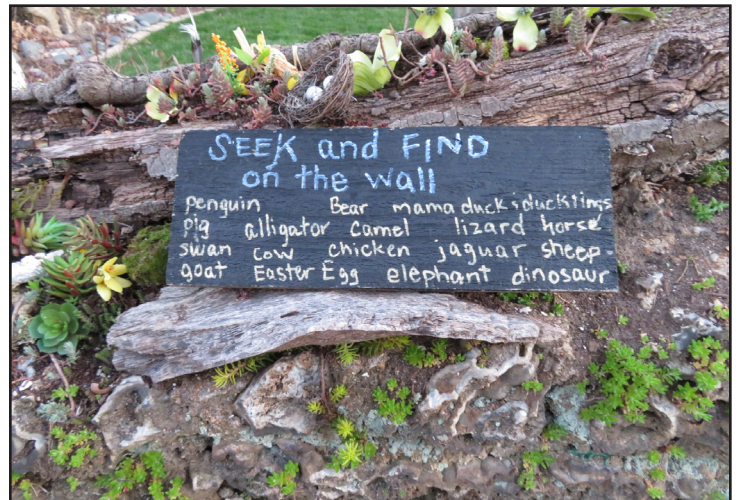 SEEK and FIND
on the wall
penguin Bear mama duck & ducklings
pig alligator camel lizard horse
swan cow chicken jaguar sheep
goat Easter Egg elephant dinosaur